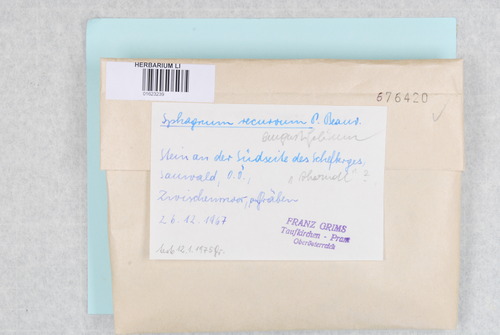 HERBARIUM LI
01623239
676420
Sphagnum recurvum P. Beauv.
angustifolium
an der Südseite des
Sauwald, O.Ö.,
Zwischenmoor,
26.12.1967
FRANZ GRIMS
Taufkirchen - Pram
Oberösterreich